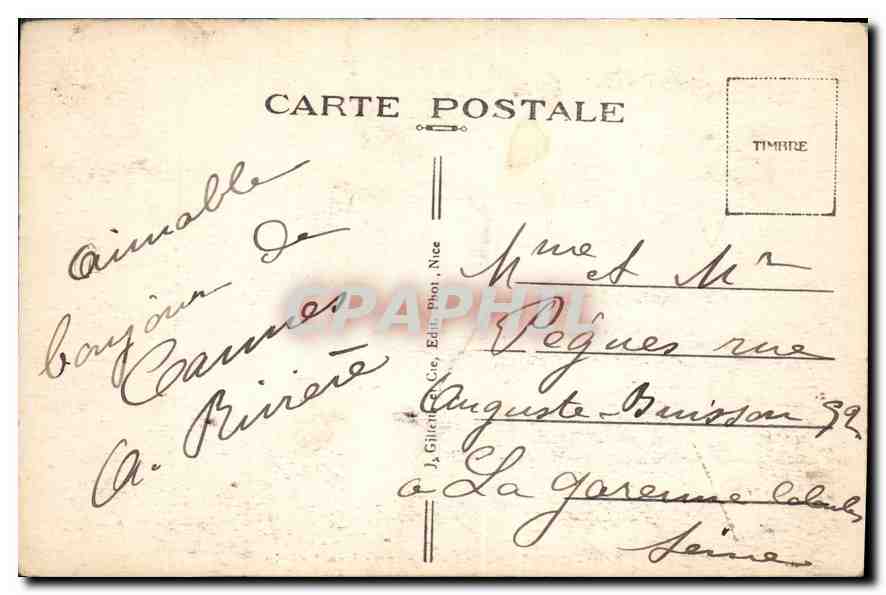 CARTE POSTALE
TIMBRE
aimable
bonjour de
Cannes
A. Rivière
J. Gilletta et Cie, Edit. Phot, Nice
CPAPHIL
Mme et Mr
Pégues rue
Auguste-Buisson 92
a La Garenne Colombes
Seine